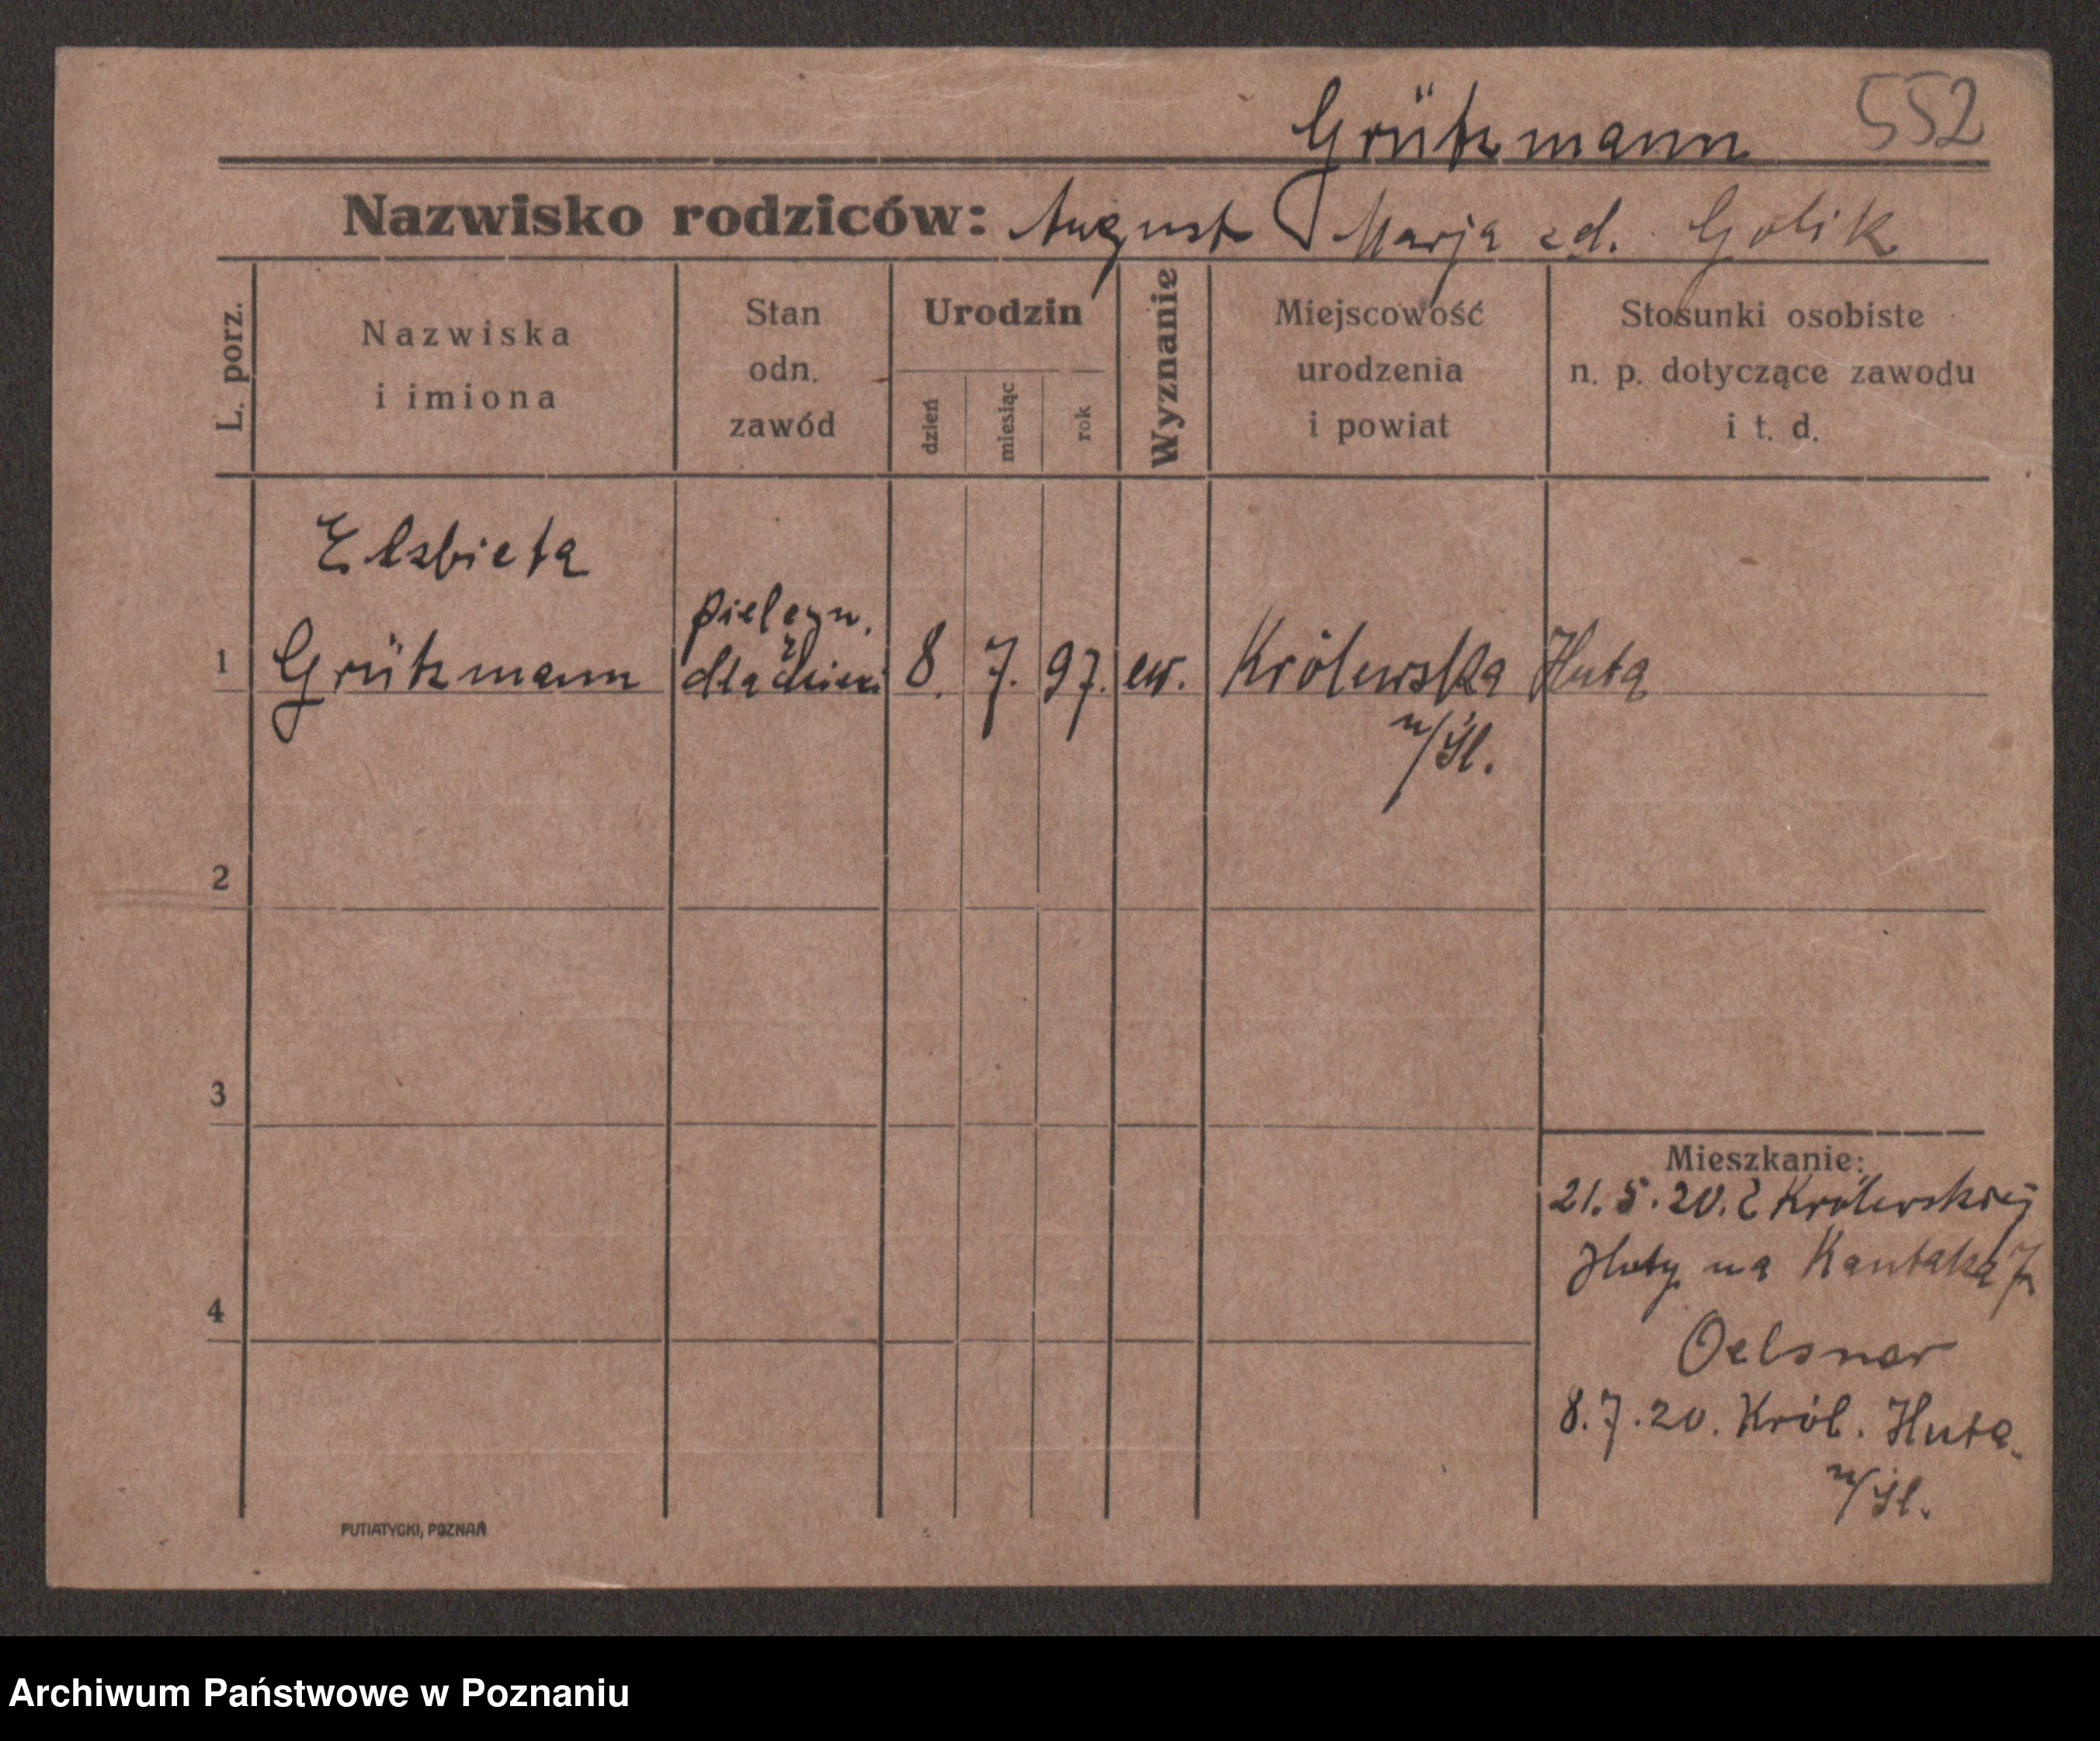 Grützmann 552
Nazwisko rodziców: August Marja zd. Golik
L. porz.
Nazwiska
i imiona
Stan
odn.
zawód
Urodzin
dzień
miesiąc
rok
Wyznanie
Miejscowość
urodzenia
i powiat
Stosunki osobiste
n. p. dotyczące zawodu
i t. d.
Elsbieta
pielegn.
1 Grützmann dla dzieci 8. 7. 97. ew. Królewska Huta
n/Śl.
2
3
4
Mieszkanie:
21.5.20. Z Królewskiej
Huty na Kantaka 7
Oelsner
8.7.20. Król. Huta
n/Śl.
PUTIATYCKI, POZNAŃ
Archiwum Państwowe w Poznaniu